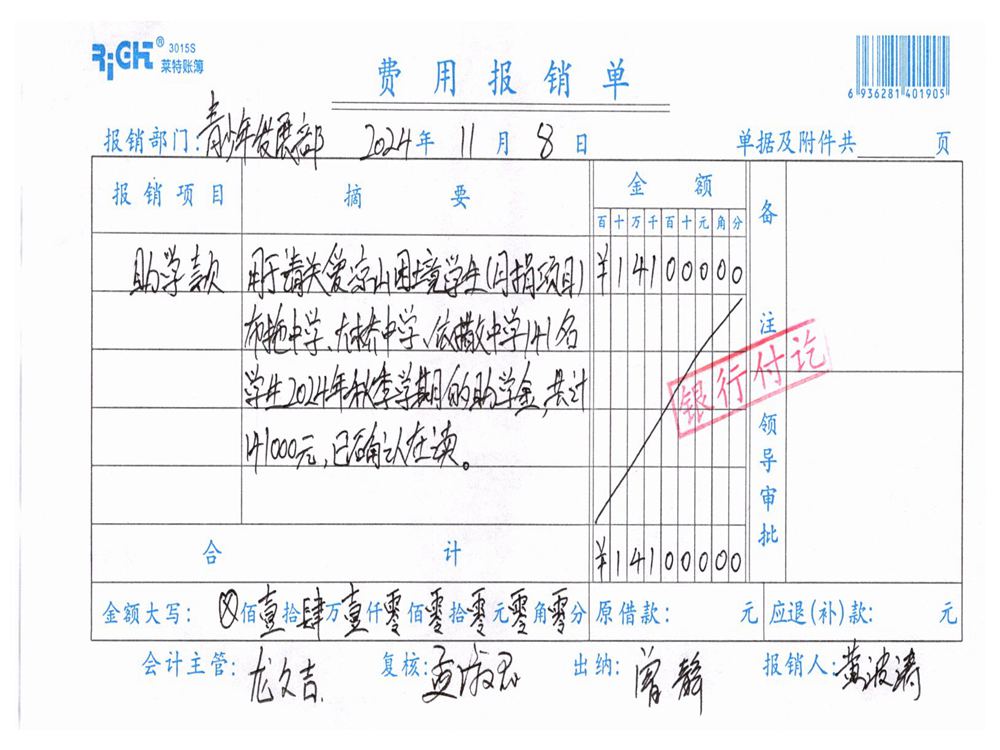 RiGHT® 3015S
莱特账簿
费用报销单
6 936281 401905
报销部门：青少年发展部 2024年 11月 8日 单据及附件共 页
报销项目 摘要 金额 备注
百十万千百十元角分
助学款 用于请关爱凉山困境学生(月捐项目) ¥14100000
布拖中学、中学、依撒中学141名
学生2024年秋季学期的助学金,共计
141000元,已确认在读。
银行付讫
领导审批
合计 ¥14100000
金额大写：⊗佰壹拾肆万壹仟零佰零拾零元零角零分 原借款： 元 应退(补)款： 元
会计主管：龙文吉 复核： 出纳：曾静 报销人：黄波涛